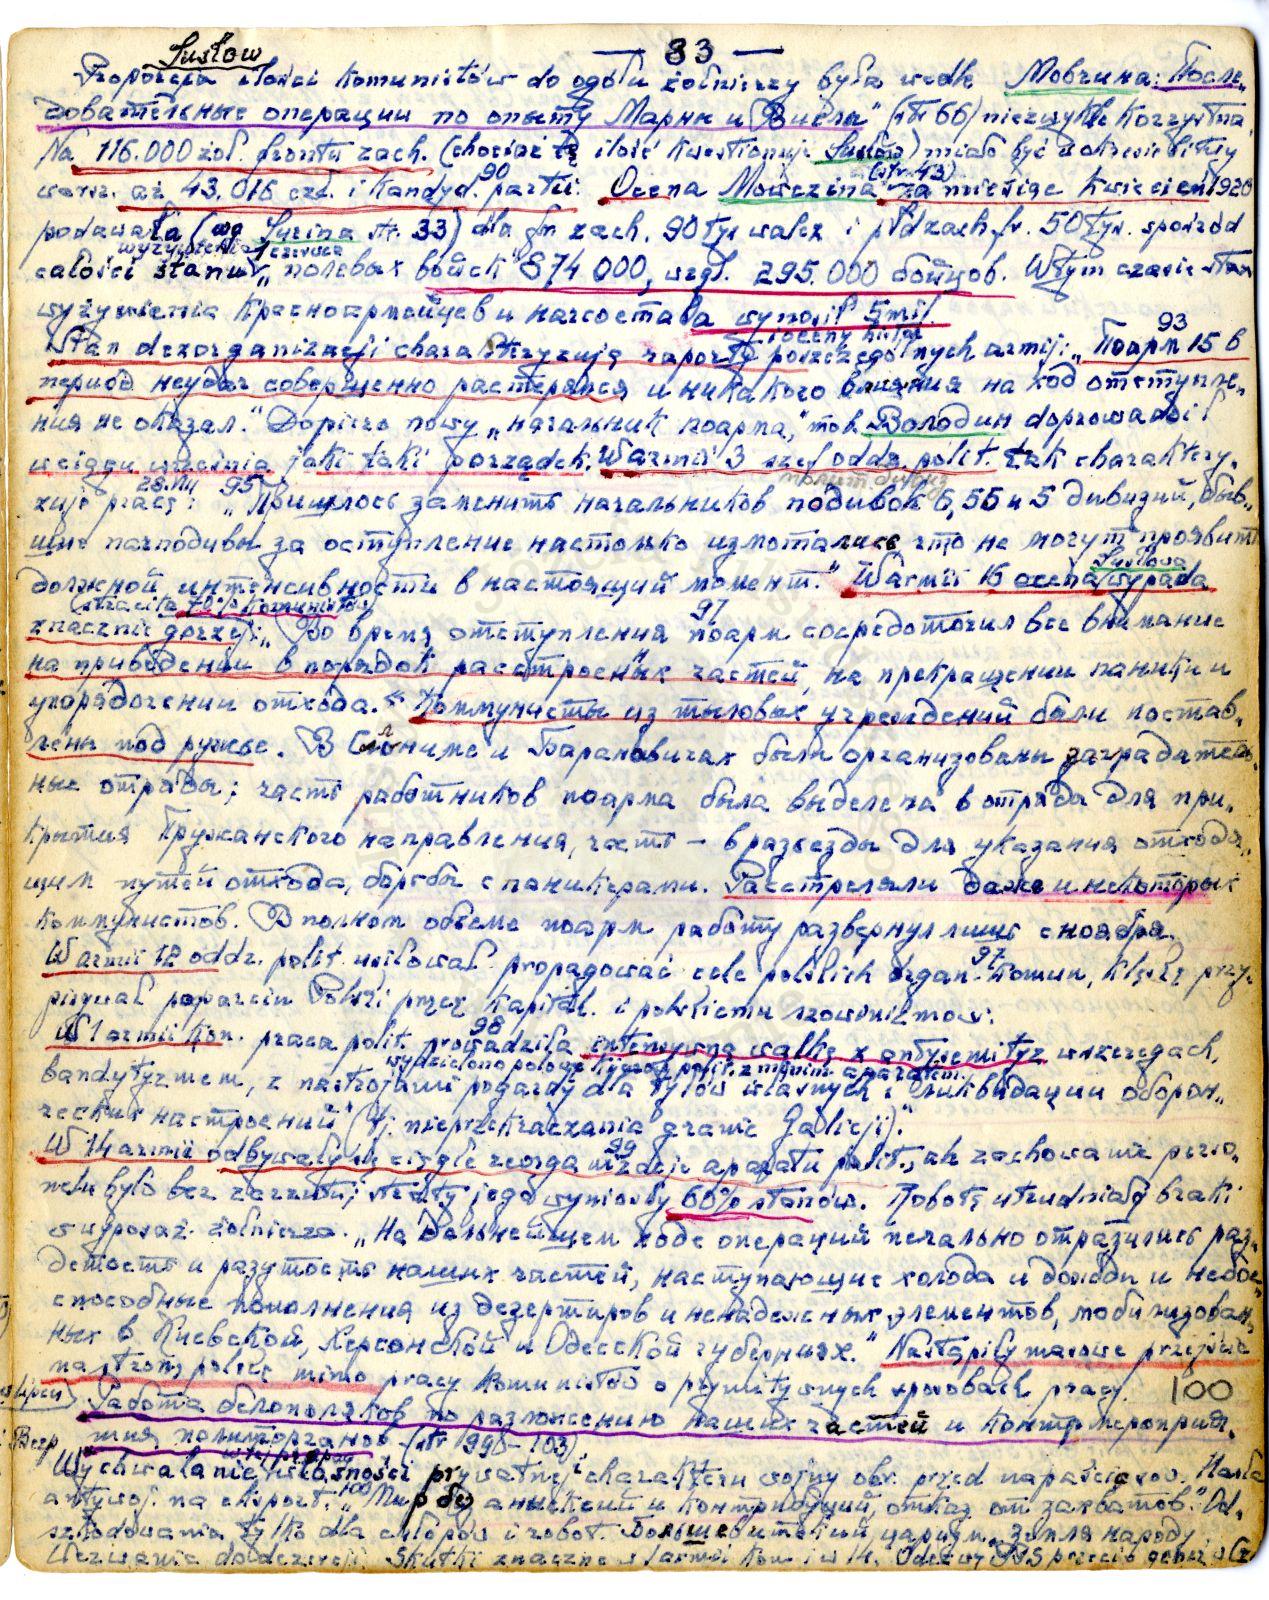 Susłow
— 83 —
Proporcja ilości komunistów do ogółu żołnierzy była wedle Мовчина: „После-
довательные операции по опыту Марны и Вислы" (str 66) niezwykle korzystna.
Na 116.000 żoł. frontu zach. (chociaż tę ilość kwestionuje Susłow) miało być w okresie bitwy
warsz. aż 43.016 czł. i kandyd. partii. 90 Ocena Mowczina (str. 43) za miesiąc kwiecień 1920
podawała (wg Suzina str. 33) dla fr. zach. 90 tys walcz i płd zach. fr. 50 tys. spośród
całości stanu wyżywienia 1 czerwca „полевых войск" 874 000, wzgl. 295.000 бойцов. W tym czasie stan
wyżywienia красноармейцев и начсостава wynosił 5 mil.
Stan dezorganizacji charakteryzują raporty i oceny poszczególnych armij: 93 „Поарм 15 в
период неудач совершенно растерялся и никакого влияния на ход отступле-
ния не оказал." Dopiero nowy „начальник поарма," тов. Володин doprowadził
w ciągu września jaki taki porządek. W armii 3 szef oddz. polit. tak charaktery-
zuje pracę: 95 „Пришлось заменить начальников подивов 6, 56 и 5 дивизий, быв-
шие начподивы за отступление настолько измотались что не могут проявить
должной интенсивности в настоящий момент." W armii 16 ocena Susłowa wypada
znacznie gorzej (straciła 70% komunistów): 97 „Во время отступления поарм сосредоточил все внимание
на приведении в порядок расстроенных частей, на прекращении паники и
упорядочении отхода." „Коммунисты из тыловых учреждений были постав-
лены под ружье. В Слониме и Барановичах были организованы заградитель-
ные отряды; часть работников поарма была выделена в отряда для при-
крытия Пружанского направления, часть — в разъезды для указания отходя-
щим путей отхода, борьбы с паникерами. Расстреляли даже и некоторых
коммунистов. В полном объеме поарм работу развернул лишь с ноября.
W armii 12 oddz. polit. usiłował propagować cele polskich organ. 97 komun, klęskę przy-
pisywał poparciu Polski przez kapitał. i polskiemu szowinizmowi.
W 1 armii kon. praca polit. prowadziła 98 intensywną walkę z antysemityz. w szeregach,
bandytyzmem, z nastrojami pogardy dla tyłów własnych i „ликвидации оборон-
ческих настроений" (tj. nieprzekraczania granic Galicji)."
W 14 armii odbywały się ciągle reorganizacje 99 aparatu polit., ale zachowanie perso-
nelu było bez zarzutu; straty jego wyniosły 60% stanów. Robotę utrudniały braki
w wyposaż. żołnierza. „На дальнейшем ходе операций печально отразились раз-
детость и разутость наших частей, наступающие холода и дожди и небое-
способные пополнения из дезертиров и ненадежных элементов, мобилизован-
ных в Киевской, Херсонской и Одесской губерниях." Nastąpiły masowe przejścia
na stronę polską mimo pracy komunistów o prymitywnych sposobach pracy. 100
Работа белополяков по разложению наших частей и контрмероприя-
тия политорганов (str 99 – 103)
Wychwalanie własności prywatnej i charakteru wojny obr. przed napaścią sow. Hasła
antywoj. na eksport. 100 „Мир без аннексий и контрибуций, отказ от захватов." Od-
szkodowania tylko dla chłopów i robot. Большевитский царизм. Земля народу
Wezwanie do dezercji. Skutki znaczne w 1 armii kon. i w 14. Odezwy